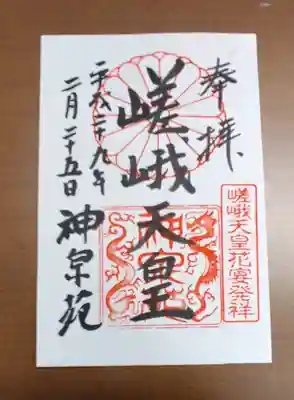 奉拝
嵯峨天皇花宴発祥
嵯峨天皇
平成二十九年
二月二十五日
神泉苑